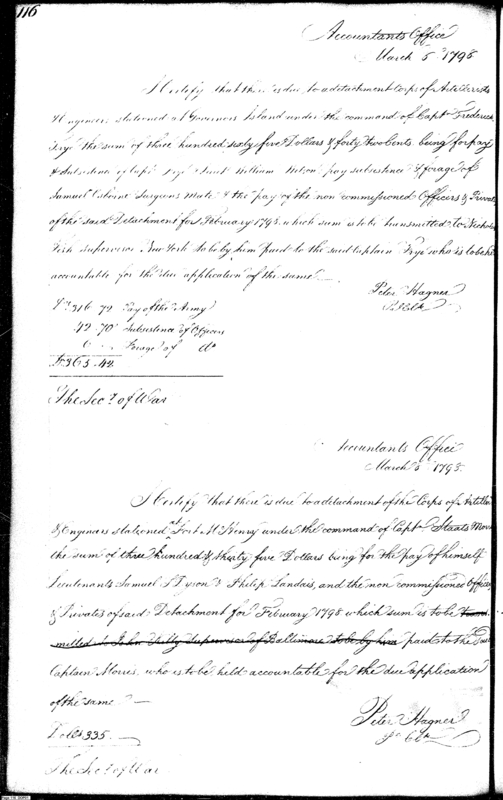 116
Accountants Office
March 5th 1798
I Certify that there is due to a detachment Corps of Artillerists
& Engineers stationed at Governors Island under the command of Capt. Frederick
Frye the sum of three hundred sixty five Dollars & forty two Cents being for pay
& subsistence of Capt. Frye & Lieut William Wilson pay subsistence & forage of
Samuel Osborne Surgeons Mate & the pay of the non commissioned Officers & Privates
of the said Detachment for February 1798 which sum is to be transmitted to Nicholas
Fish Supervisor New York to be by him paid to the said Captain Frye who is to be held
accountable for the due application of the same
Peter Hagner
P. Clk
316 72 Pay of the Army
42 70 Subsistence of Officers
6 Forage of do
$365.42
The Secy of War
Accountants Office
March 5 1798
I Certify that there is due to a detachment of the Corps of Artillerists
& Engineers stationed at Fort McHenry under the command of Capt Staats Morris
the sum of three hundred & thirty five Dollars being for the pay of himself
Lieutenants Samuel T Dyson & Philip Landais, and the non commissioned Officers
& Privates of said Detachment for February 1798 which sum is to be trans-
mitted to John Kilty Supervisor of Baltimore to be by him paid to the said
Captain Morris, who is to be held accountable for the due application
of the same
Peter Hagner
P. Clk
Dolls 335.
The Secy of War